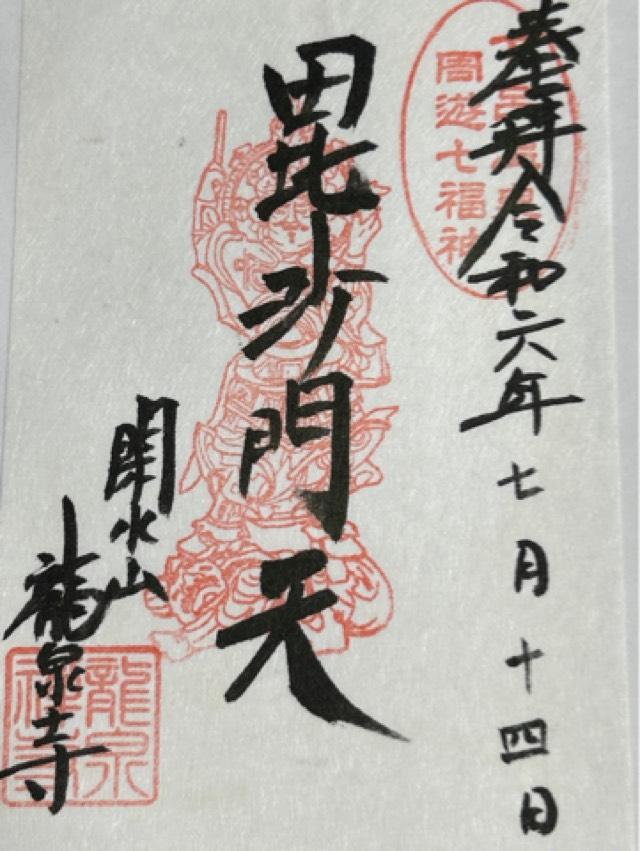 奉拝 令和六年七月十四日
周遊七福神
毘沙門天
水山
龍泉寺
龍泉
禅寺